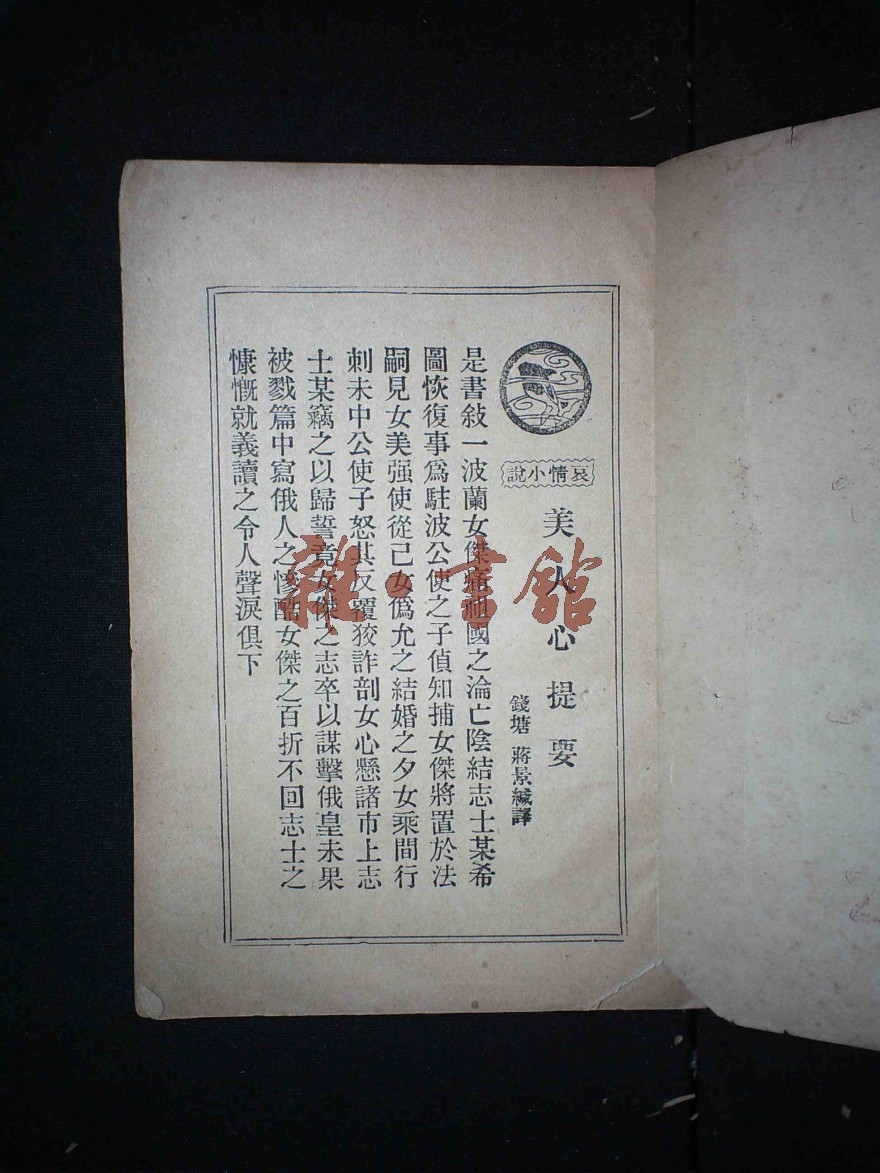 哀情小說
美人心提要
錢塘 蔣景緘譯
是書敍一波蘭女傑痛祖國之淪亡陰結志士某希
圖恢復事爲駐波公使之子偵知捕女傑將置於法
嗣見女美强使從己女僞允之結婚之夕女乘間行
刺未中公使子怒其反覆狡詐剖女心懸諸市上志
士某竊之以歸誓竟女傑之志卒以謀擊俄皇未果
被戮篇中寫俄人之慘酷女傑之百折不回志士之
慷慨就義讀之令人聲淚俱下
雜·書館